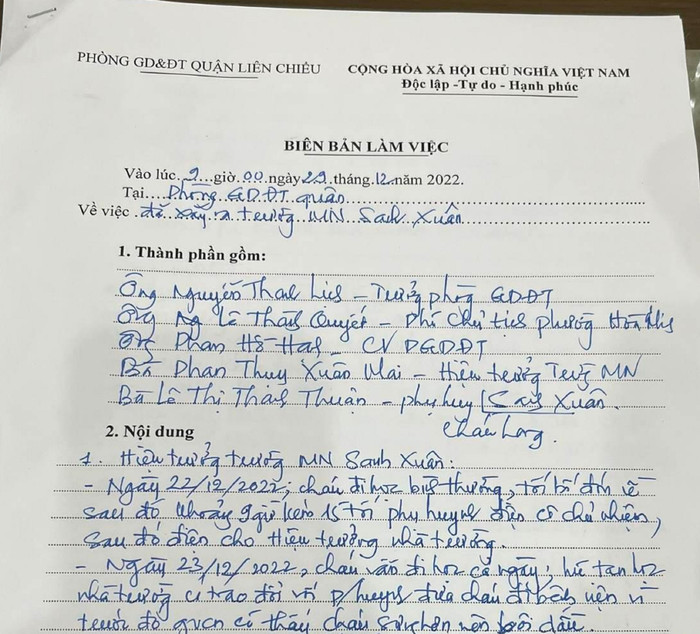 PHÒNG GD&ĐT QUẬN LIÊN CHIỂU
CỘNG HÒA XÃ HỘI CHỦ NGHĨA VIỆT NAM
Độc lập -Tự do - Hạnh phúc
BIÊN BẢN LÀM VIỆC
Vào lúc 9 giờ 00 ngày 29 tháng 12 năm 2022.
Tại Phòng GDĐT quận
Về việc đã xảy ra trường MN Sanh Xuân
1. Thành phần gồm:
Ông Nguyễn Thanh Lịch – Trưởng phòng GDĐT
Ông Ng Lê Thành Quyết – Phó chủ tịch phường Hòa
Phan Hồ Hải – CV PGDĐT
Bà Phan Thụy Xuân Mai – Hiệu trưởng Trường MN
Sanh Xuân.
Bà Lê Thị Thanh Thuận – phụ huynh
cháu Long.
2. Nội dung
1. Hiệu trưởng trường MN Sanh Xuân:
- Ngày 22/12/2022, cháu đi học bình thường, tối bố đón về
sau đó khoảng 9 giờ kém 15 tối phụ huynh điện cô chủ nhiệm,
sau đó điện cho Hiệu trưởng nhà trường.
- Ngày 23/12/2022, cháu vẫn đi học cả ngày, lúc tan học
nhà trường có trao đổi với phụ huynh đưa cháu đi bệnh viện vì
trước đó gvcn có thấy cháu sưng hơn nên bôi dầu.